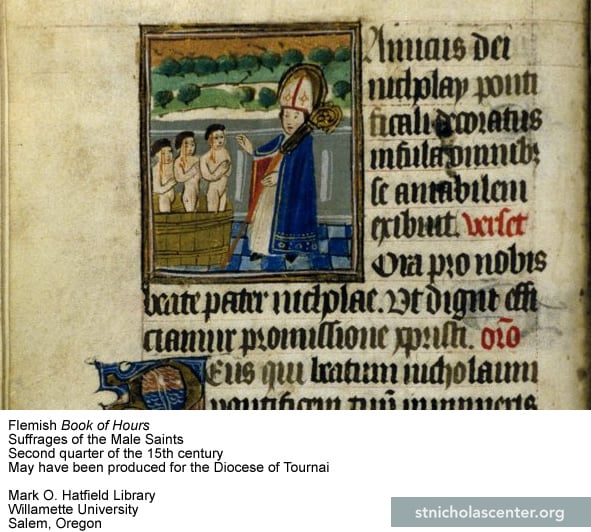 Amicus dei
nicholay ponti
ficali decoratus
infula omnibꝫ
se amabilem
exibuit. verset
Ora pro nobis
beate pater nicholae. Vt digni effi
ciamur promissione xpristi. orō
Deus qui beatum nicholaum
pontificem tuū innumeris
Flemish Book of Hours
Suffrages of the Male Saints
Second quarter of the 15th century
May have been produced for the Diocese of Tournai
Mark O. Hatfield Library
Willamette University
Salem, Oregon
stnicholascenter.org